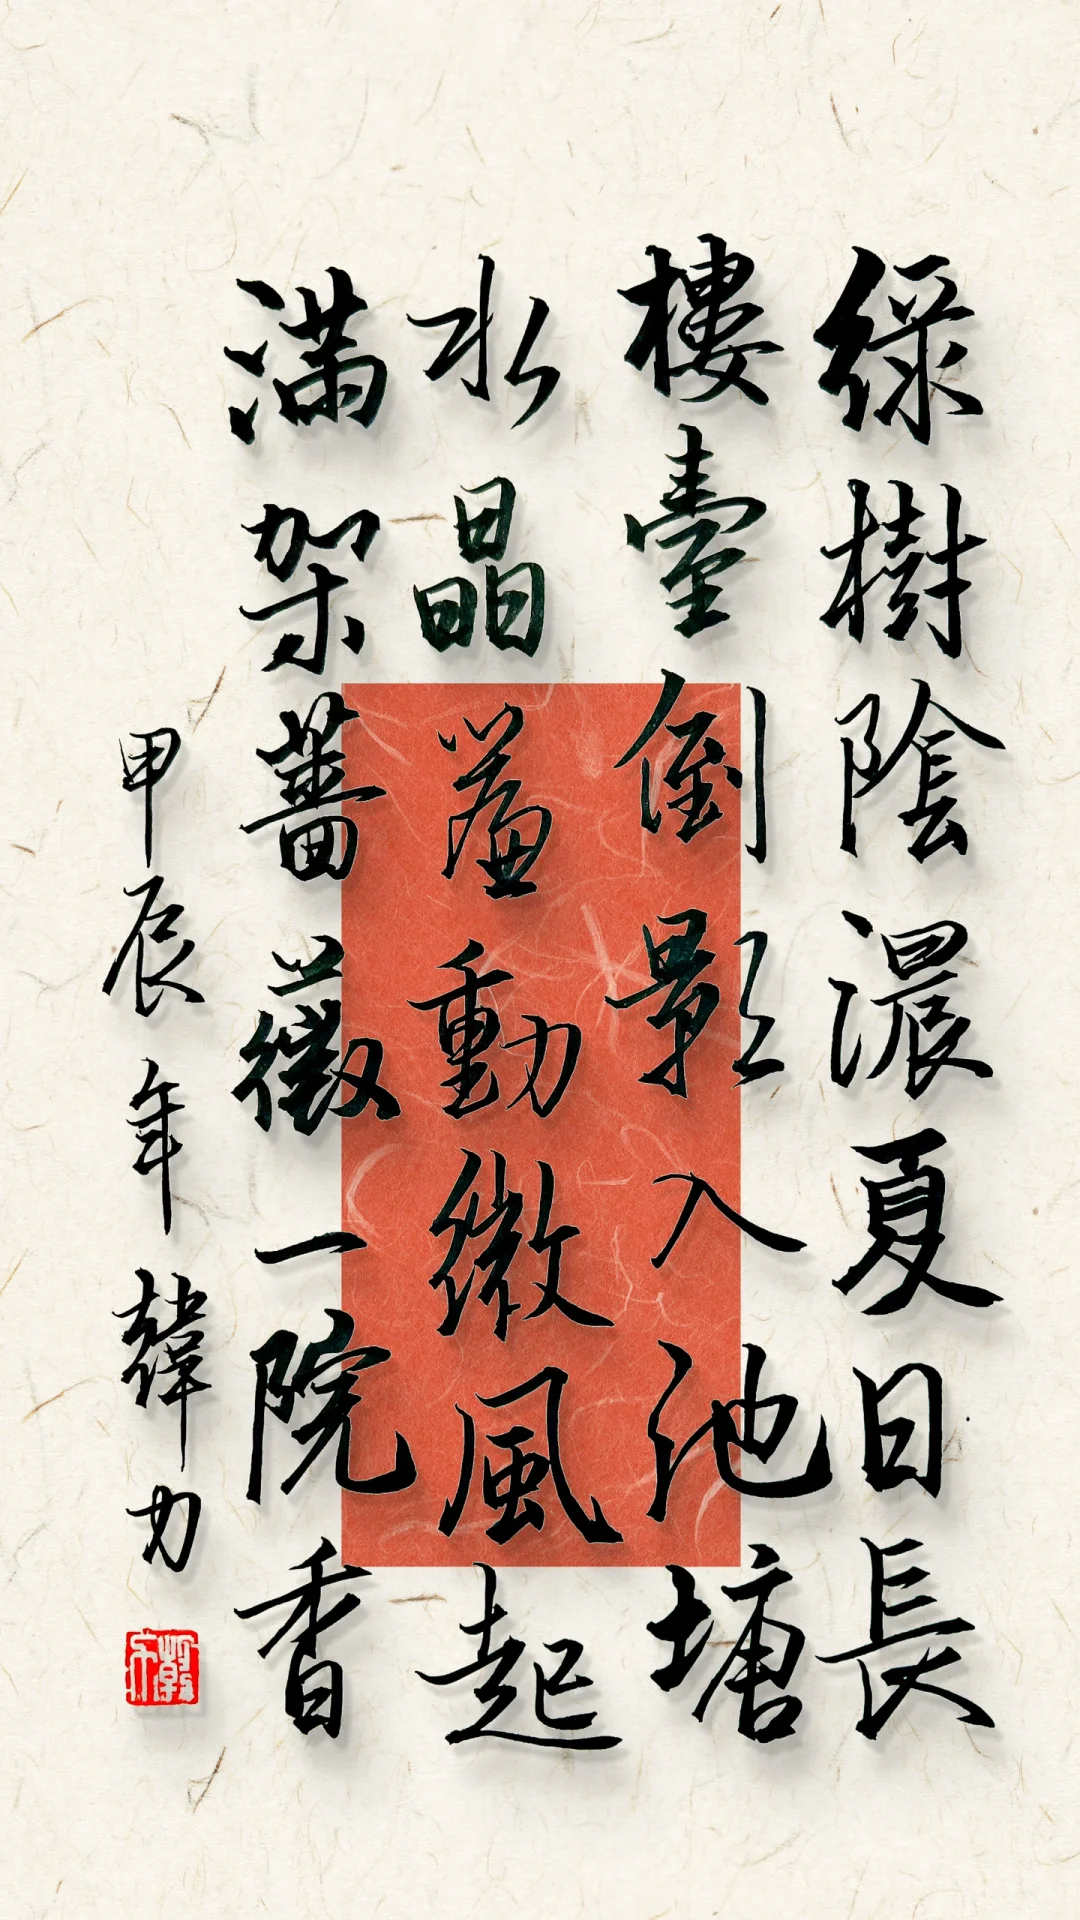 綠樹陰濃夏日長
樓臺倒影入池塘
水晶簾動微風起
滿架薔薇一院香
甲辰年韓力